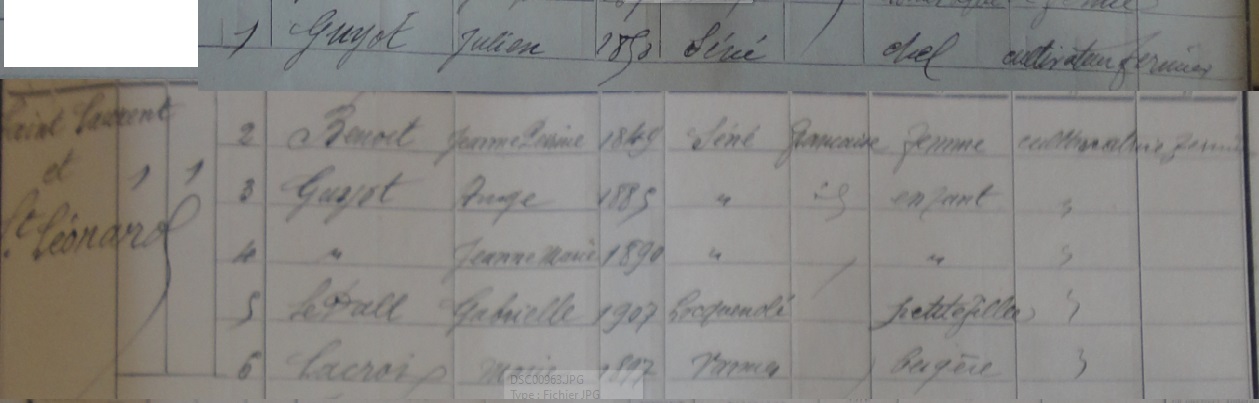 1 Guyot Julien 1850 Séné chef cultivateur fermier
Saint Laurent
2 Benoit Jeanne Louise 1849 Séné française femme cultivatrice
et
1 1
3 Guyot Ange 1885 " id enfant "
St Léonard
4 " Jeanne Marie 1890 " "
5 Le Dall Gabrielle 1907 petite fille
6 Lacroix Marie 1897 Vannes bergère
DSC00963.JPG
Type : Fichier JPG